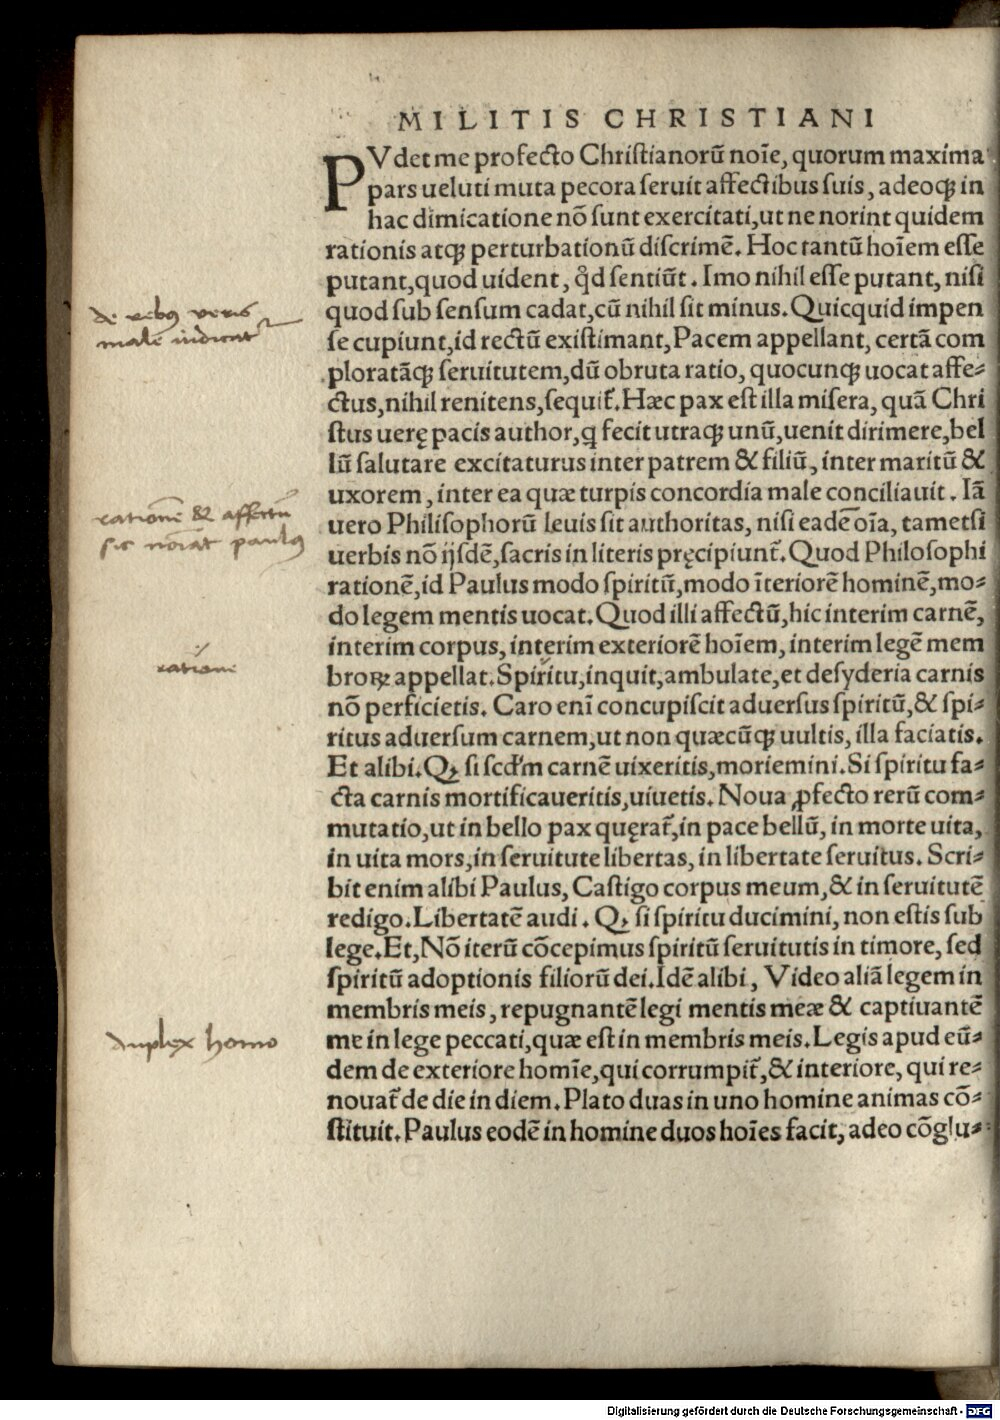 MILITIS CHRISTIANI
PVdet me profecto Christianorū noīe, quorum maxima
pars ueluti muta pecora seruit affectibus suis, adeoqꝫ in
hac dimicatione nō sunt exercitati,ut ne norint quidem
rationis atqꝫ perturbationū discrimē. Hoc tantū hoīem esse
putant,quod uident, qd̓ sentiūt. Imo nihil esse putant, nisi
quod sub sensum cadat,cū nihil sit minus. Quicquid impen
se cupiunt,id rectū existimant,Pacem appellant, certā com
ploratāqꝫ seruitutem,dū obruta ratio, quocunqꝫ uocat affe⸗
ctus,nihil renitens,sequit᷑.Hæc pax est illa misera, quā Chri
stus uerę pacis author,q fecit utraqꝫ unū,uenit dirimere,bel
lū salutare excitaturus inter patrem & filiū, inter maritū &
uxorem, inter ea quæ turpis concordia male conciliauit. Iā
uero Philisophorū leuis sit authoritas, nisi eadē oīa, tametsi
uerbis nō ijsdē,sacris in literis pręcipiunt᷑.Quod Philosophi
rationē,id Paulus modo spiritū,modo īteriorē hominē,mo⸗
do legem mentis uocat.Quod illi affectū,hic interim carnē,
interim corpus, interim exteriorē hoīem, interim legē mem
broꝝ appellat.Spiritu,inquit,ambulate,et desyderia carnis
nō perficietis. Caro enī concupiscit aduersus spiritū,& spi⸗
ritus aduersum carnem,ut non quæcūqꝫ uultis, illa faciatis.
Et alibi.Qꝫ si scd̓m carnē uixeritis,moriemini.Si spiritu fa⸗
cta carnis mortificaueritis,uiuetis. Noua ꝓfecto rerū com⸗
mutatio,ut in bello pax quęrat᷑,in pace bellū, in morte uita,
in uita mors,in seruitute libertas, in libertate seruitus. Scri⸗
bit enim alibi Paulus, Castigo corpus meum,& in seruitutē
redigo.Libertatē audi. Qꝫ si spiritu ducimini, non estis sub
lege.Et,Nō iterū cōcepimus spiritū seruitutis in timore, sed
spiritū adoptionis filiorū dei.Idē alibi, Video aliā legem in
membris meis, repugnantē legi mentis meæ & captiuantē
me in lege peccati,quæ est in membris meis.Legis apud eū⸗
dem de exteriore homīe,qui corrumpit᷑,& interiore, qui re⸗
nouat᷑ de die in diem.Plato duas in uno homine animas cō⸗
stituit.Paulus eodē in homine duos hoīes facit, adeo cōglu⸗
de rebus veris
male iudicat
rationē & affectū
sic notat paulus
ratione
duplex homo
Digitalisierung gefördert durch die Deutsche Forschungsgemeinschaft - DFG